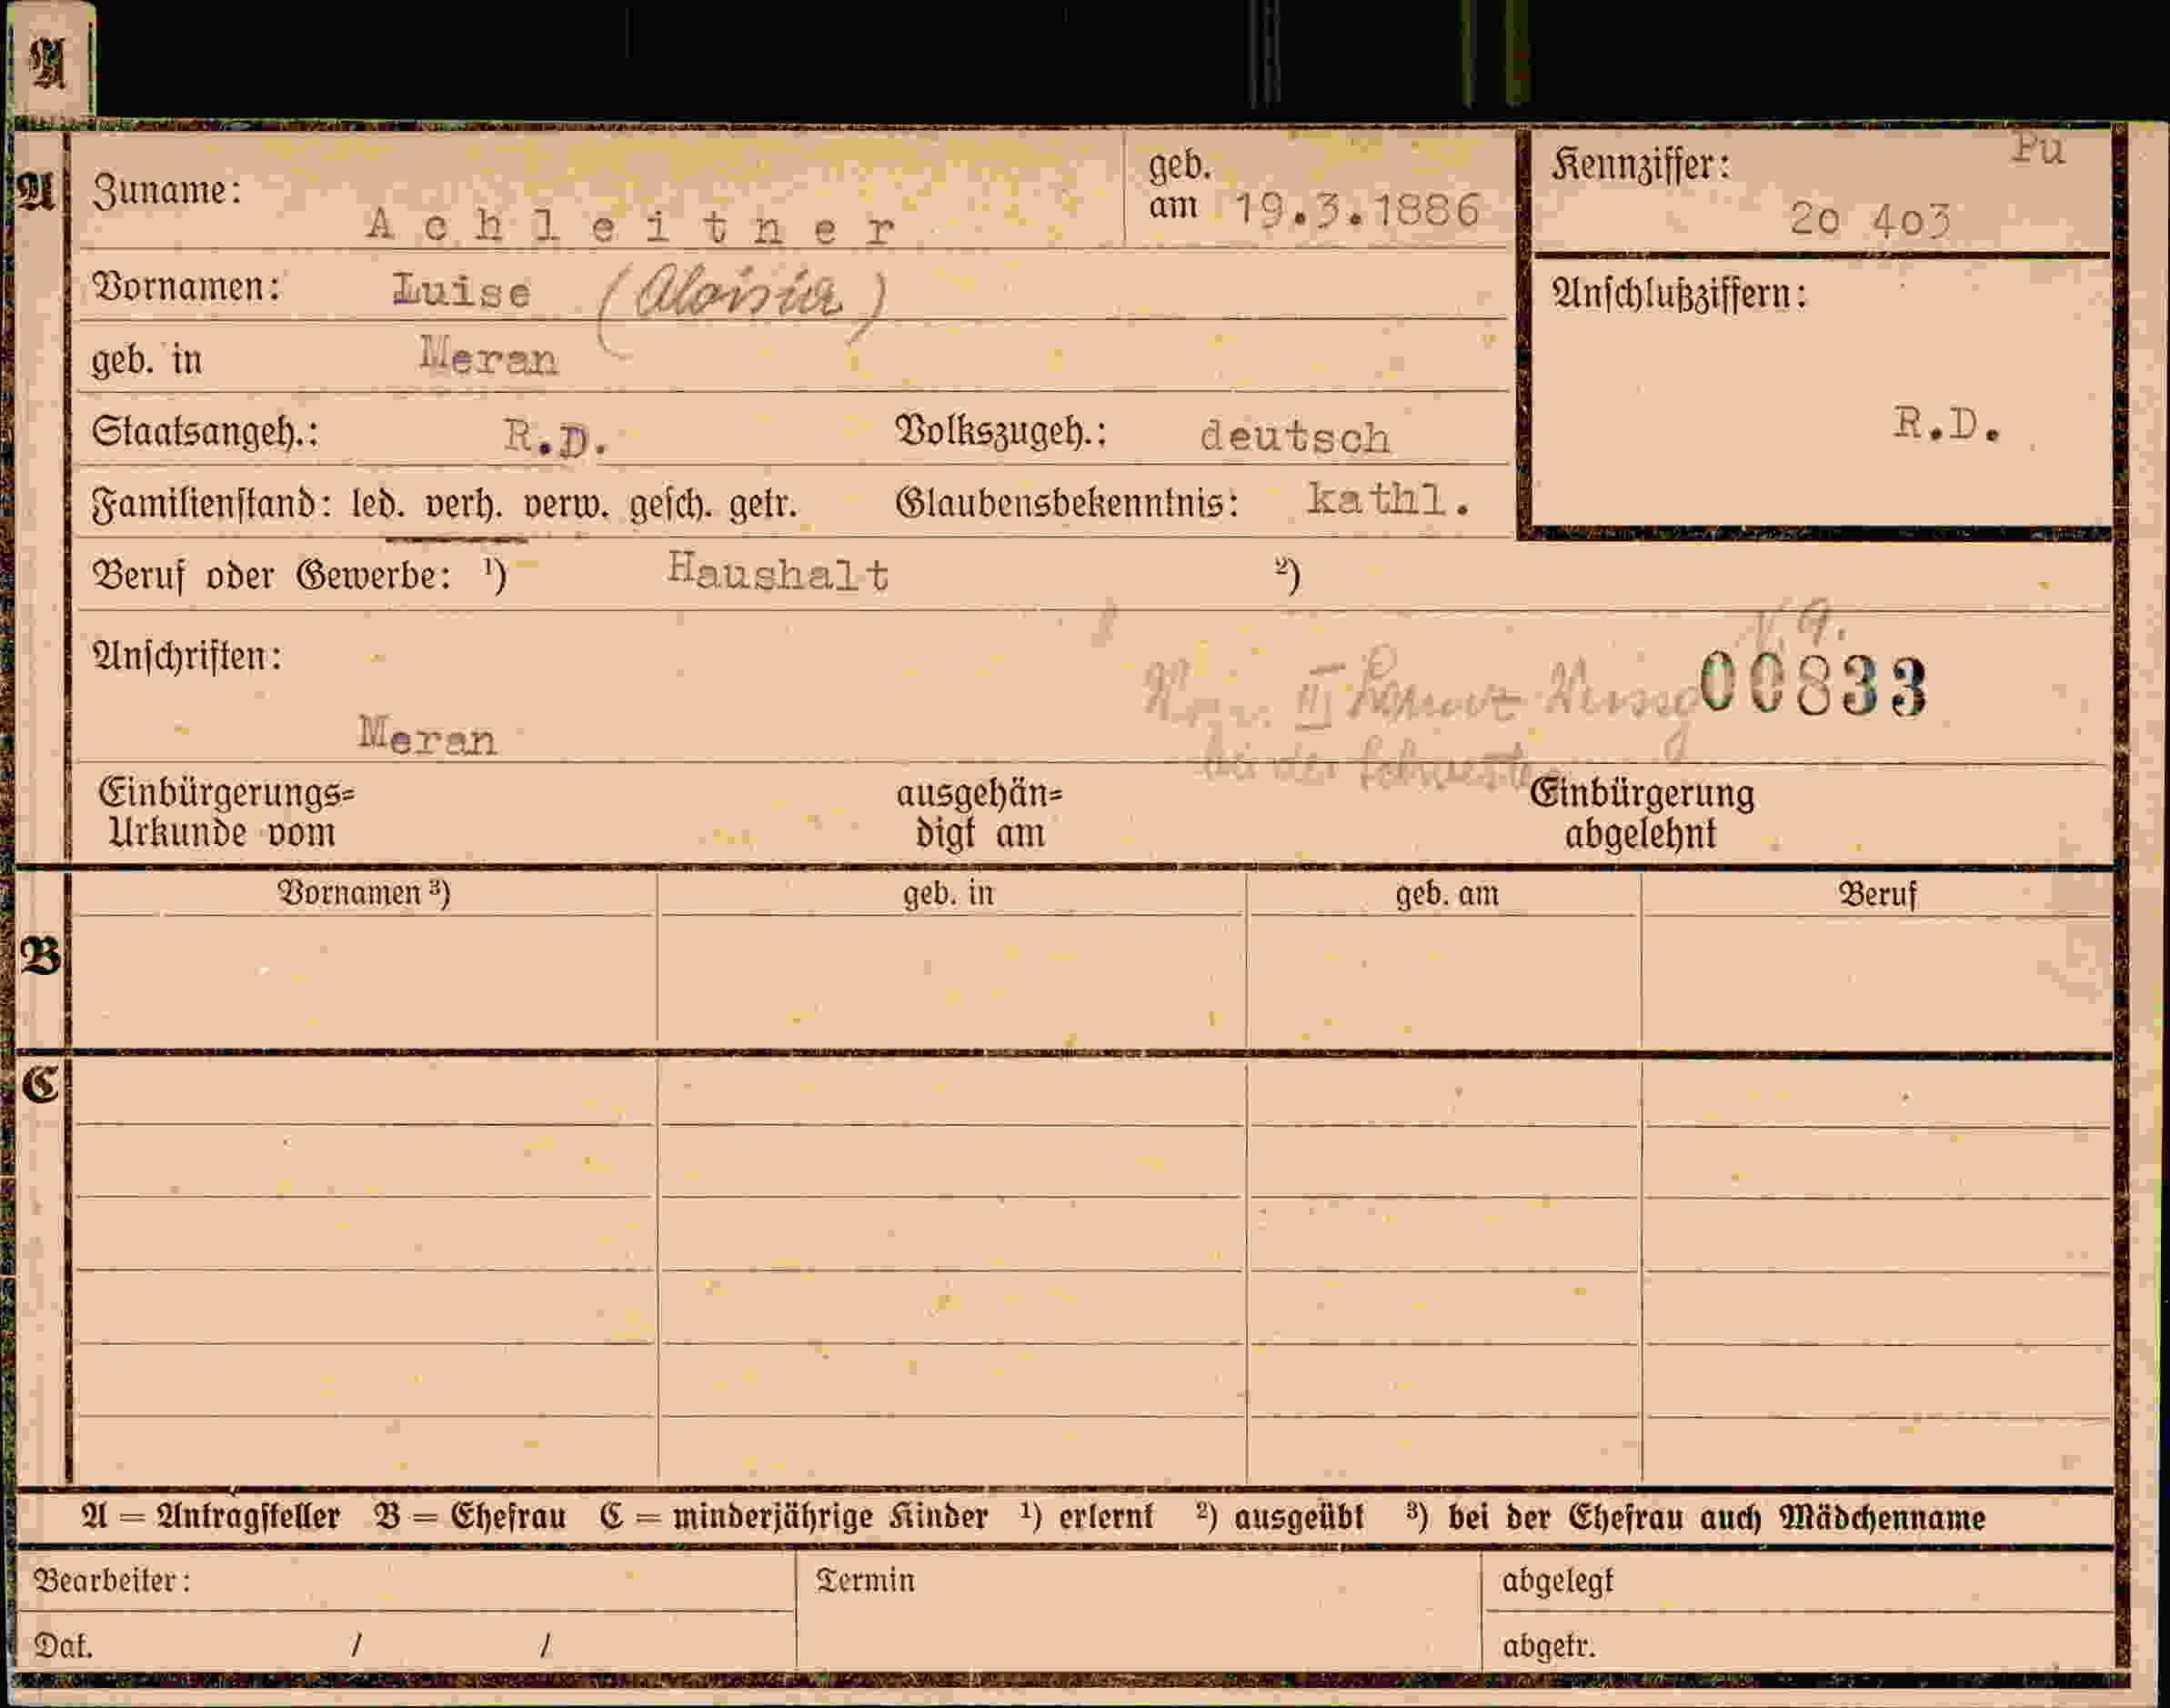 A
A
Zuname: Achleitner geb. am 19.3.1886
Kennziffer: Pu
20 403
Vornamen: Luise (Aloisia)
Anschlußziffern:
geb. in Meran
Staatsangeh.: R.D. Volkszugeh.: deutsch
R.D.
Familienstand: led. verh. verw. gesch. getr. Glaubensbekenntnis: kathl.
Beruf oder Gewerbe: ¹) Haushalt ²)
Anschriften:
III
00833
Meran
bei der Schwester
Einbürgerungs= ausgehän= Einbürgerung
Urkunde vom digt am abgelehnt
B
Vornamen ³) geb. in geb. am Beruf
C
A = Antragsteller B = Ehefrau C = minderjährige Kinder ¹) erlernt ²) ausgeübt ³) bei der Ehefrau auch Mädchenname
Bearbeiter: Termin abgelegt
Dat. / / abgetr.